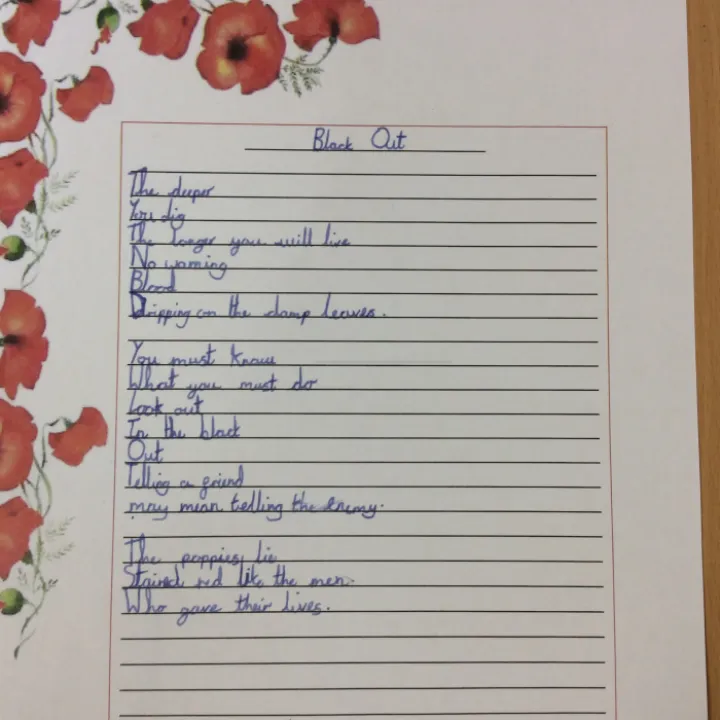 Black Out
The deeper
You dig
The longer you will live
No warning
Blood
Dripping on the damp leaves.
You must know
What you must do
Look out
In the black
Out
Telling a friend
may mean telling the enemy.
The poppies lie
Stained red like the men.
Who gave their lives.